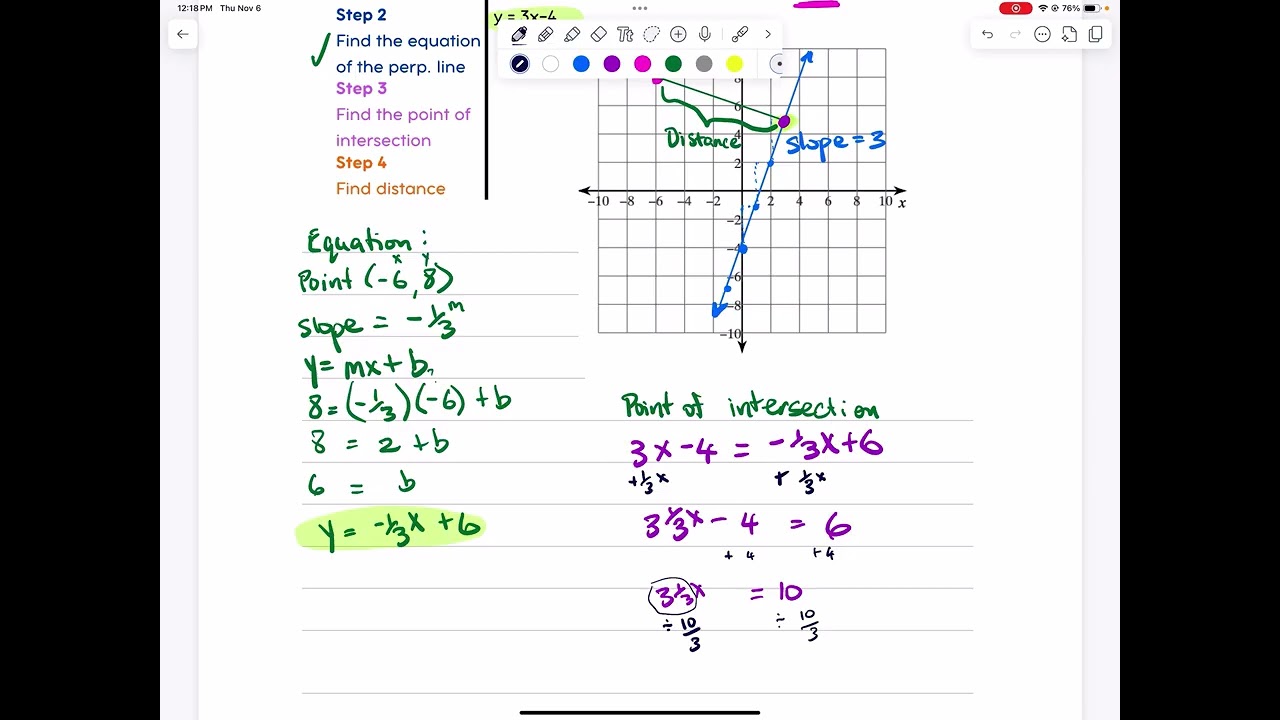 12:18 PM Thu Nov 6
76%
Step 2
Find the equation
of the perp. line
Step 3
Find the point of
intersection
Step 4
Find distance
y = 3x-4
8
6
4
2
-2
-4
-6
-8
-10
-10 -8 -6 -4 -2 2 4 6 8 10 x
Distance
slope = 3
Equation :
x y
Point (-6, 8)
slope = -1/3 m
y = mx + b
8 = (-1/3)(-6) + b
8 = 2 + b
6 = b
y = -1/3x + 6
Point of intersection
3x - 4 = -1/3x + 6
+1/3x + 1/3x
3 1/3x - 4 = 6
+ 4 + 4
3 1/3x = 10
÷ 10/3 ÷ 10/3